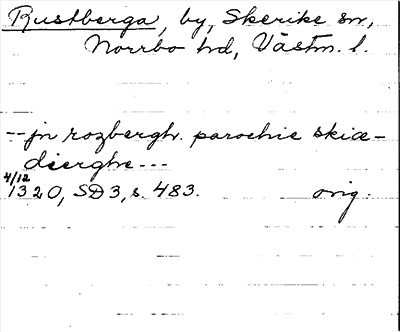 Rustberga, by, Skerike sn,
Norrbo hd, Västm. l.
--jn rozbergh. parochie skiæ-
dierghe---
4/12
1320, SD3, s. 483. orig.